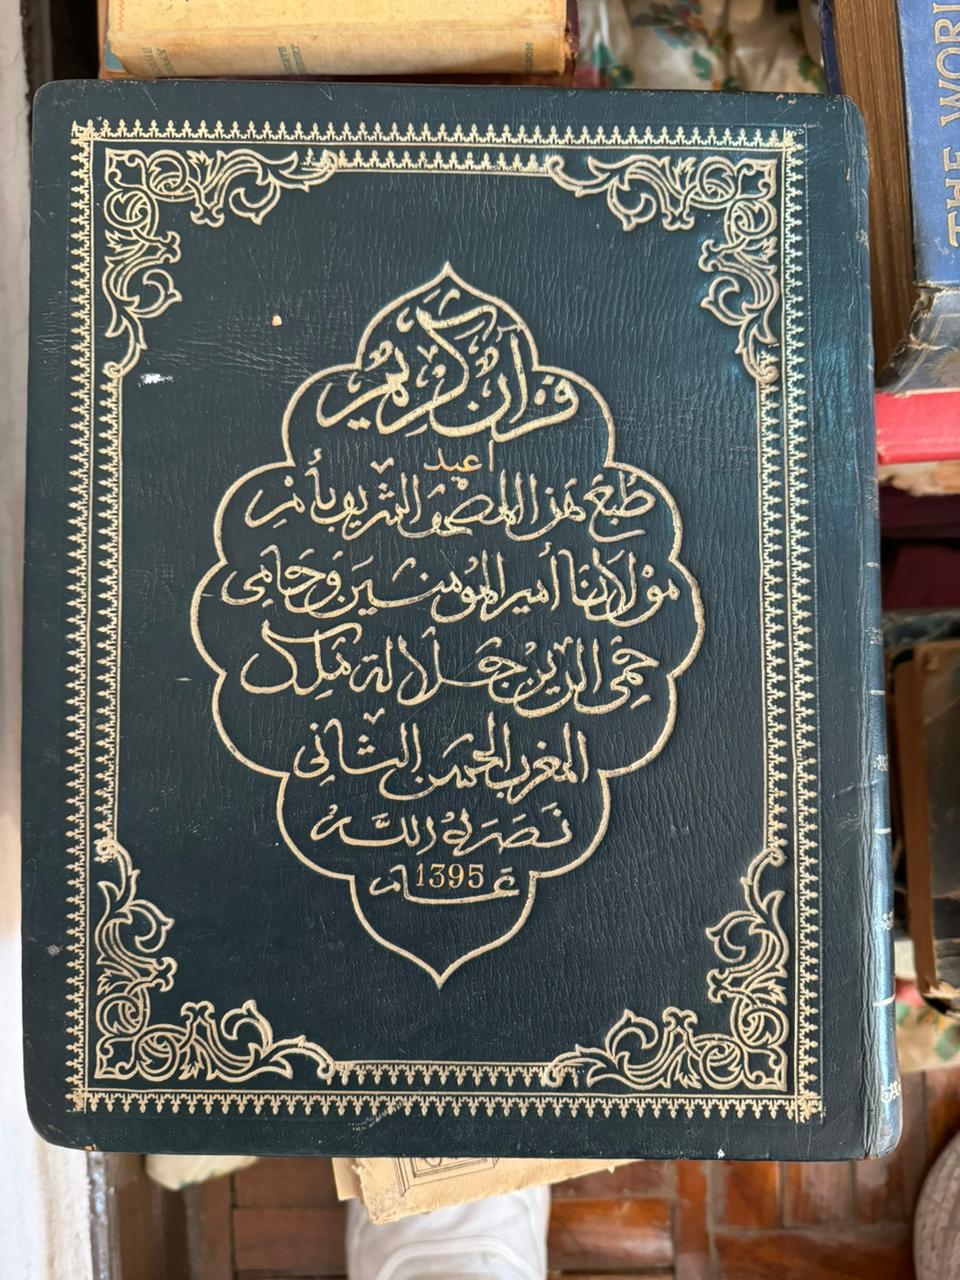 قرآن كريم
اعيد
طبع هذا المصحف الشريف بأمر
مولانا أمير المومنين وحامى
حمى الدين جلالة ملك
المغرب الحسن الثانى
نصره الله
عام 1395
THE WORL